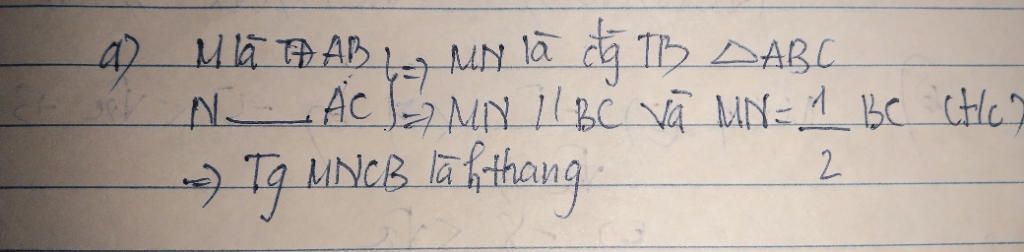 a) M là TĐ AB } => MN là đtg TB △ABC
N ___ AC } => MN // BC và MN = 1/2 BC (t/c)
=> Tg MNCB là h.thang